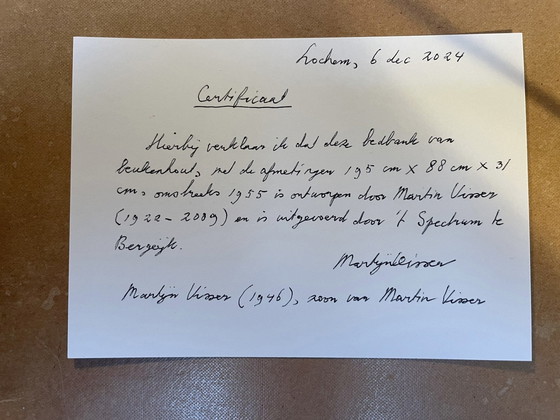 Lochem, 6 dec 2024
Certificaat
Hierbij verklaar ik dat deze bedbank van
beukenhout, met de afmetingen 195 cm x 88 cm x 31
cm, omstreeks 1955 is ontworpen door Martin Visser
(1922-2009) en is uitgevoerd door 't Spectrum te
Bergeijk.
Martijn Visser
Martijn Visser (1946), zoon van Martin Visser